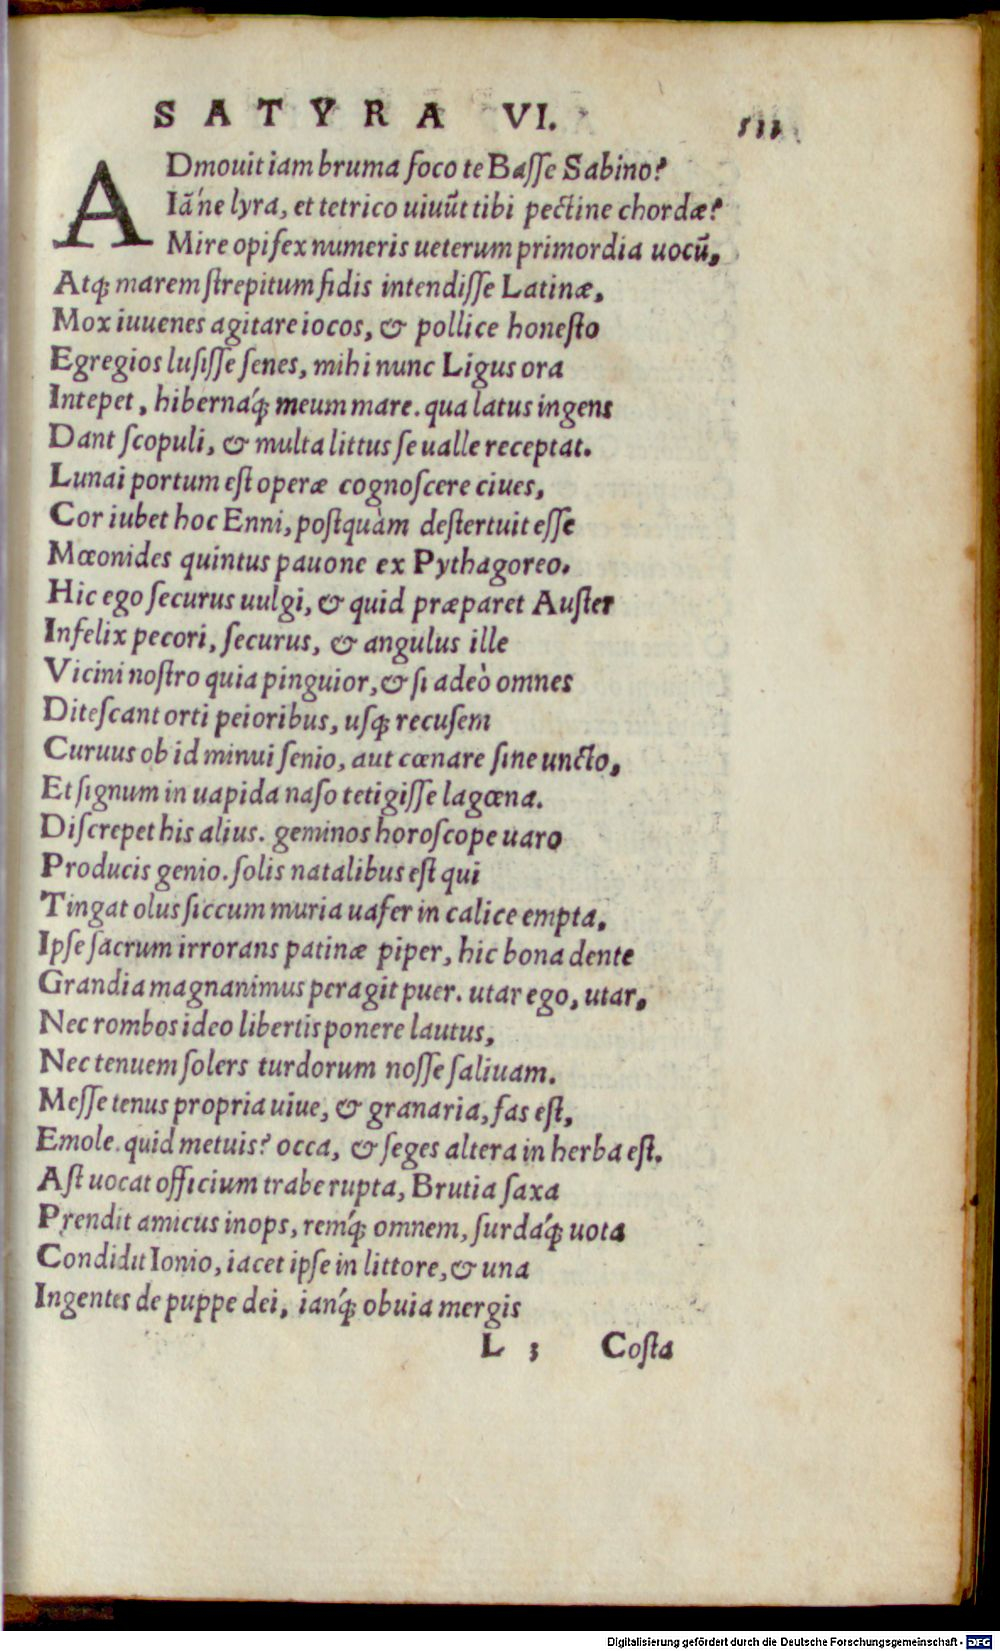 SATYRA VI.
ADmouit iam bruma foco te Basse Sabino?
Iã'ne lyra, et tetrico uiuũt tibi pectine chordæ?
Mire opifex numeris ueterum primordia uocũ,
Atq; marem strepitum fidis intendisse Latinæ,
Mox iuuenes agitare iocos, & pollice honesto
Egregios lusisse senes, mihi nunc Ligus ora
Intepet, hibernáq; meum mare. qua latus ingens
Dant scopuli, & multa littus se ualle receptat.
Lunai portum est operæ cognoscere ciues,
Cor iubet hoc Enni, postquàm destertuit esse
Mœonides quintus pauone ex Pythagoreo.
Hic ego securus uulgi, & quid præparet Auster
Infelix pecori, securus, & angulus ille
Vicini nostro quia pinguior, & si adeò omnes
Ditescant orti peioribus, usq; recusem
Curuus ob id minui senio, aut cœnare sine uncto,
Et signum in uapida naso tetigisse lagœna.
Discrepet his alius. geminos horoscope uaro
Producis genio. solis natalibus est qui
Tingat olus siccum muria uafer in calice empta,
Ipse sacrum irrorans patinæ piper, hic bona dente
Grandia magnanimus peragit puer. utar ego, utar,
Nec rombos ideo libertis ponere lautus,
Nec tenuem solers turdorum nosse saliuam.
Messe tenus propria uiue, & granaria, fas est,
Emole. quid metuis? occa, & seges altera in herba est.
Ast uocat officium trabe rupta, Brutia saxa
Prendit amicus inops, remq́; omnem, surdáq; uota
Condidit Ionio, iacet ipse in littore, & una
Ingentes de puppe dei, ianq́; obuia mergis
L 3 Costa
Digitalisierung gefördert durch die Deutsche Forschungsgemeinschaft - DFG